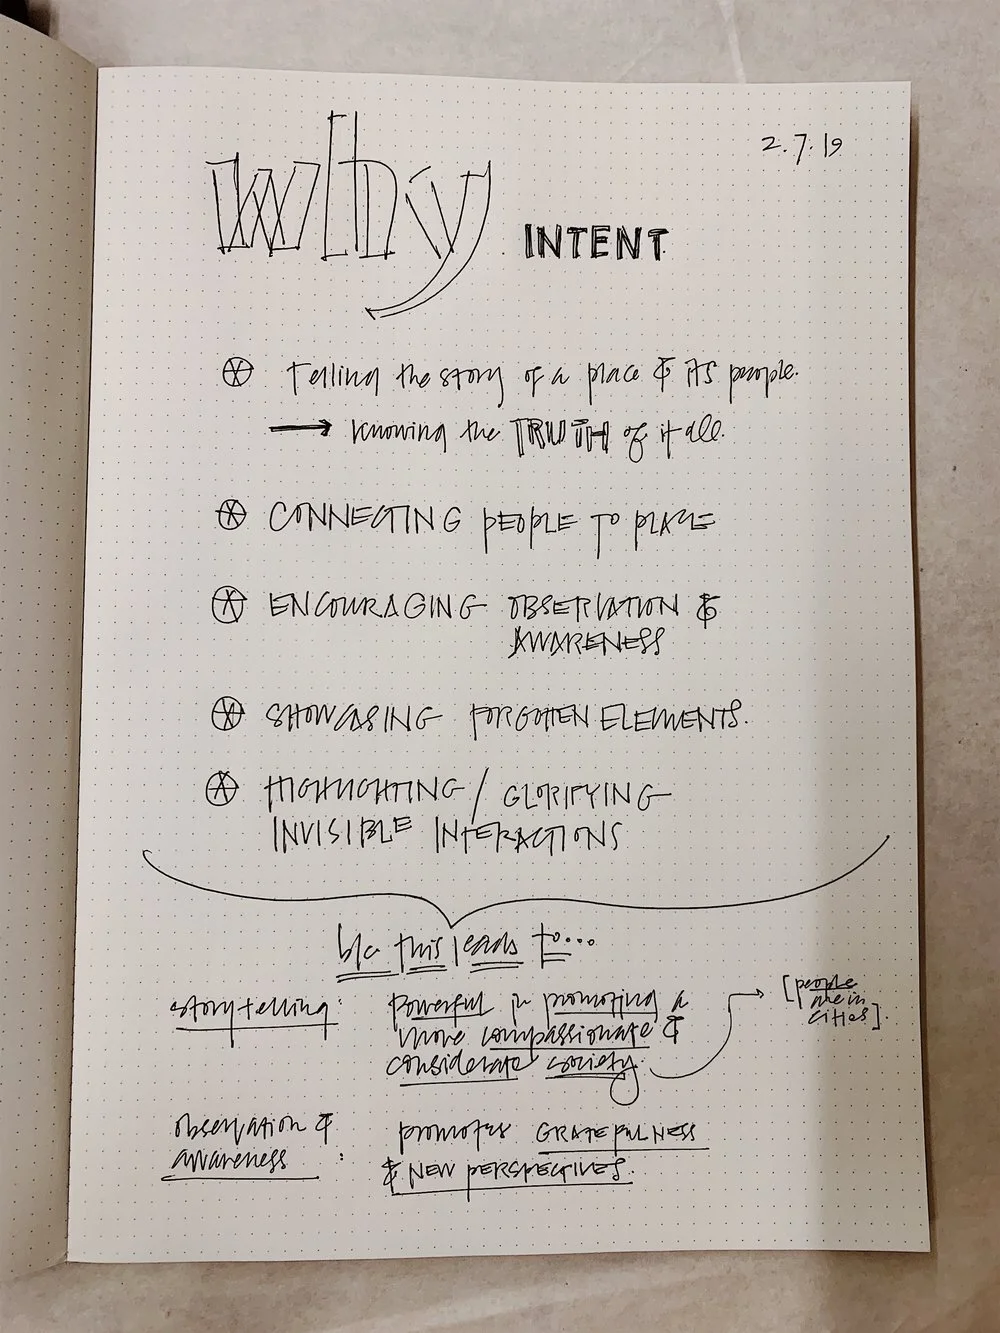 2.7.19
why INTENT
telling the story of a place & its people.
→ knowing the TRUTH of it all.
CONNECTING PEOPLE TO PLACE
ENCOURAGING OBSERVATION &
AWARENESS
SHOWCASING FORGOTTEN ELEMENTS.
HIGHLIGHTING / GLORIFYING
INVISIBLE INTERACTIONS
b/c this leads to...
storytelling: powerful in promoting a
more compassionate &
considerate society.
[people
are in
cities].
observation &
awareness :
promotes GRATEFULNESS
& NEW PERSPECTIVES.